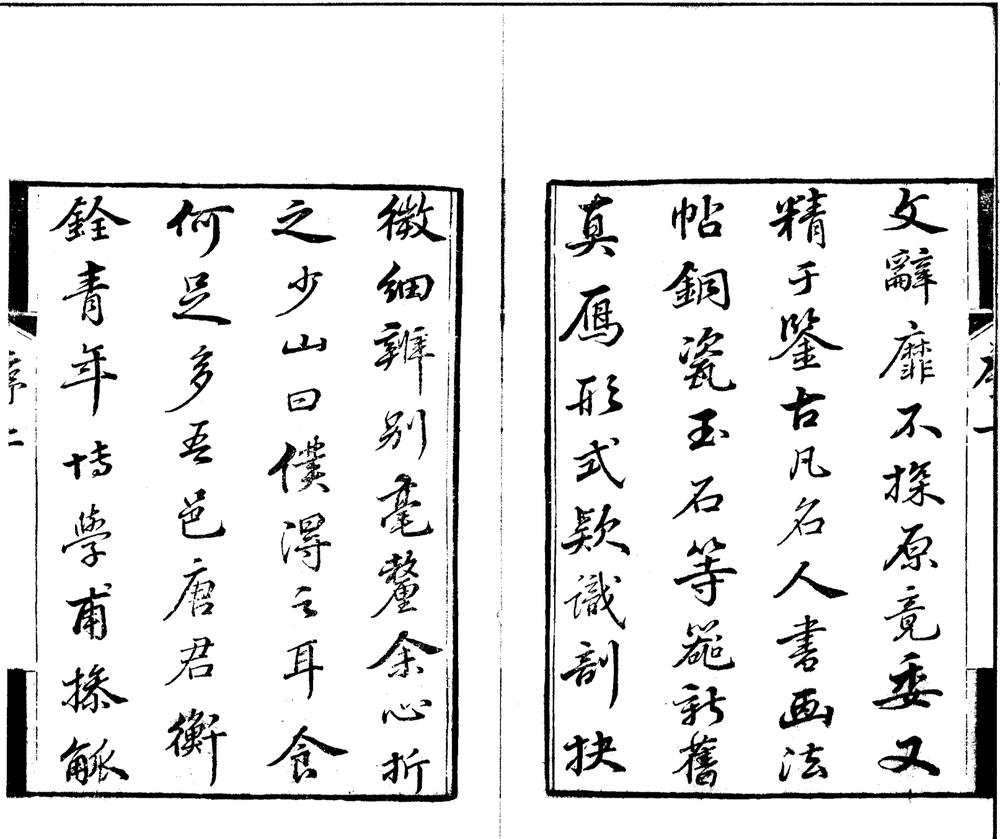 文辭靡不探原竟委又
精于鑒古凡名人書画法
帖銅瓷玉石等器新舊
真鴈形式欵識剖抉
微細辨别毫釐余心折
之少山曰僕得之耳食
何足多吾邑唐君衡
銓青年博學甫操觚
序二